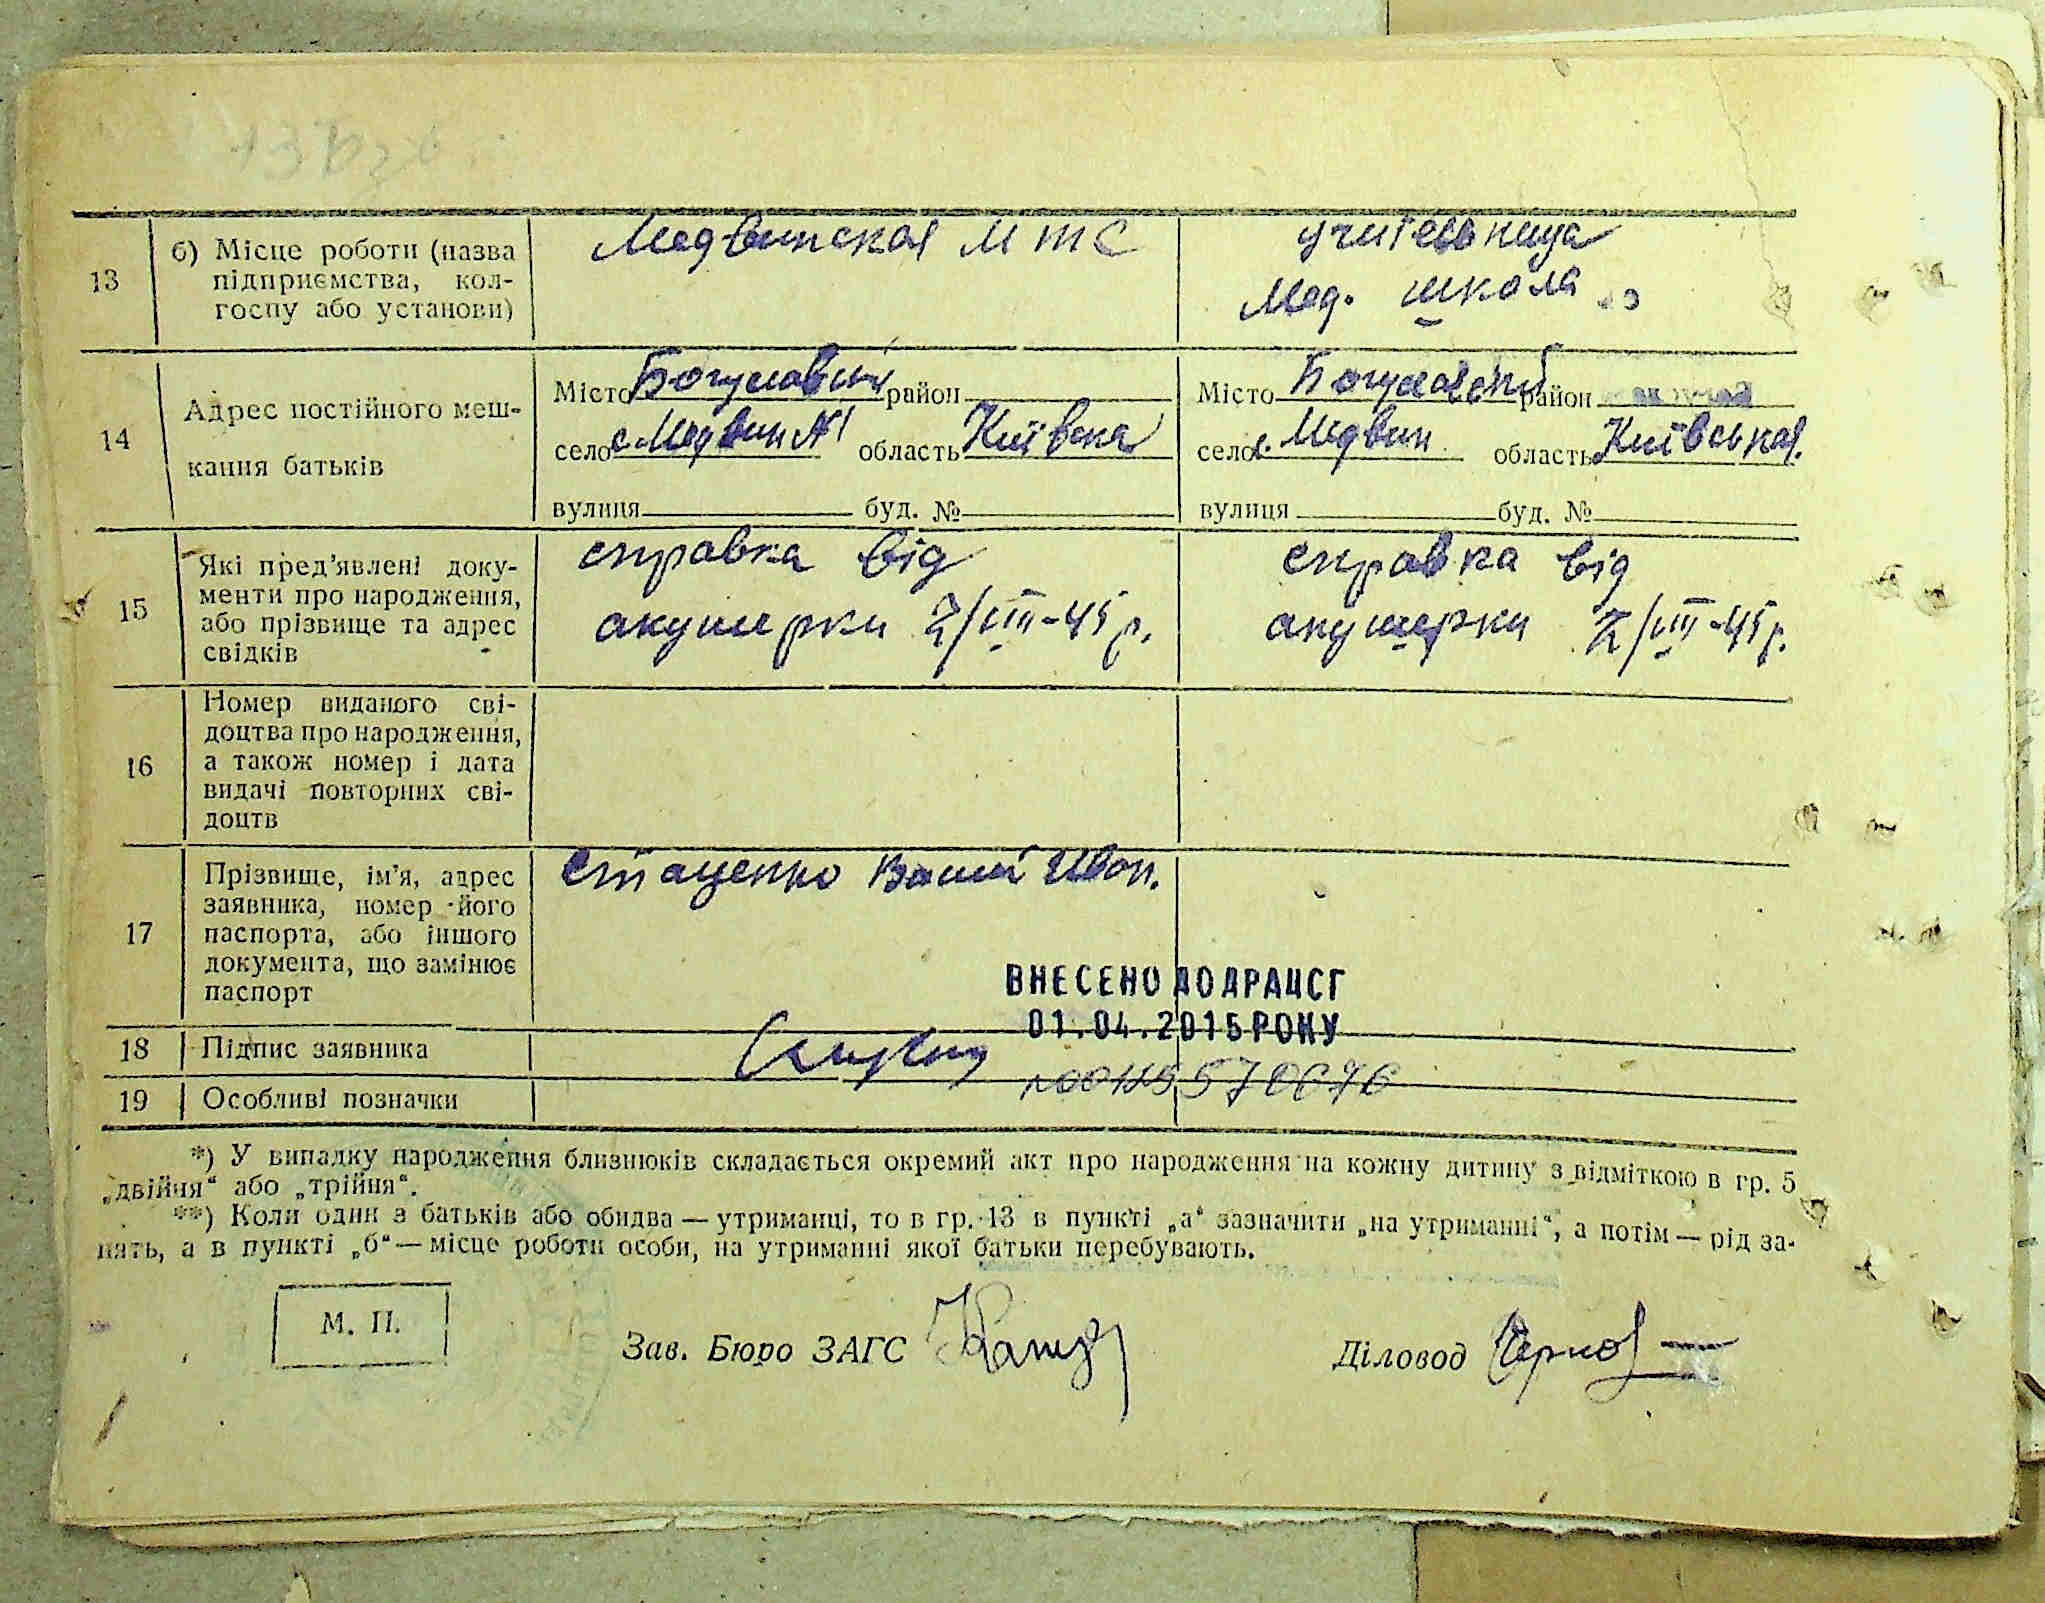 13 б) Місце роботи (назва підприємства, колгоспу або установи) Медвинская МТС учительница Мед. школа
14 Адрес постійного мешкання батьків
Місто Богуславский район Місто Богуславский район
село с. Медвин №1 область Київська село с. Медвин область Київська
вулиця буд. № вулиця буд. №
15 Які пред'явлені документи про народження, або прізвище та адрес свідків справка від акушерки 2/VIII-45 р. справка від акушерки 2/VIII-45 р.
16 Номер виданого свідоцтва про народження, а також номер і дата видачі повторних свідоцтв
17 Прізвище, ім'я, адрес заявника, номер його паспорта, або іншого документа, що замінює паспорт Стаценко Иван.
ВНЕСЕНО ДО ДРАЦСГ
01.04.2015 РОКУ
18 Підпис заявника
19 Особливі позначки
*) У випадку народження близнюків складається окремий акт про народження на кожну дитину з відміткою в гр. 5
„двійня“ або „трійня“.
**) Коли один з батьків або обидва — утриманці, то в гр. 13 в пункті „а“ зазначити „на утриманні“, а потім — рід за-
нять, а в пункті „б“ — місце роботи особи, на утриманні якої батьки перебувають.
М. П.
Зав. Бюро ЗАГС Діловод